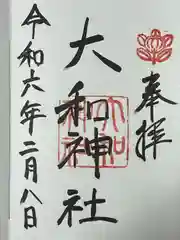 奉拝
大和神社
令和六年二月八日